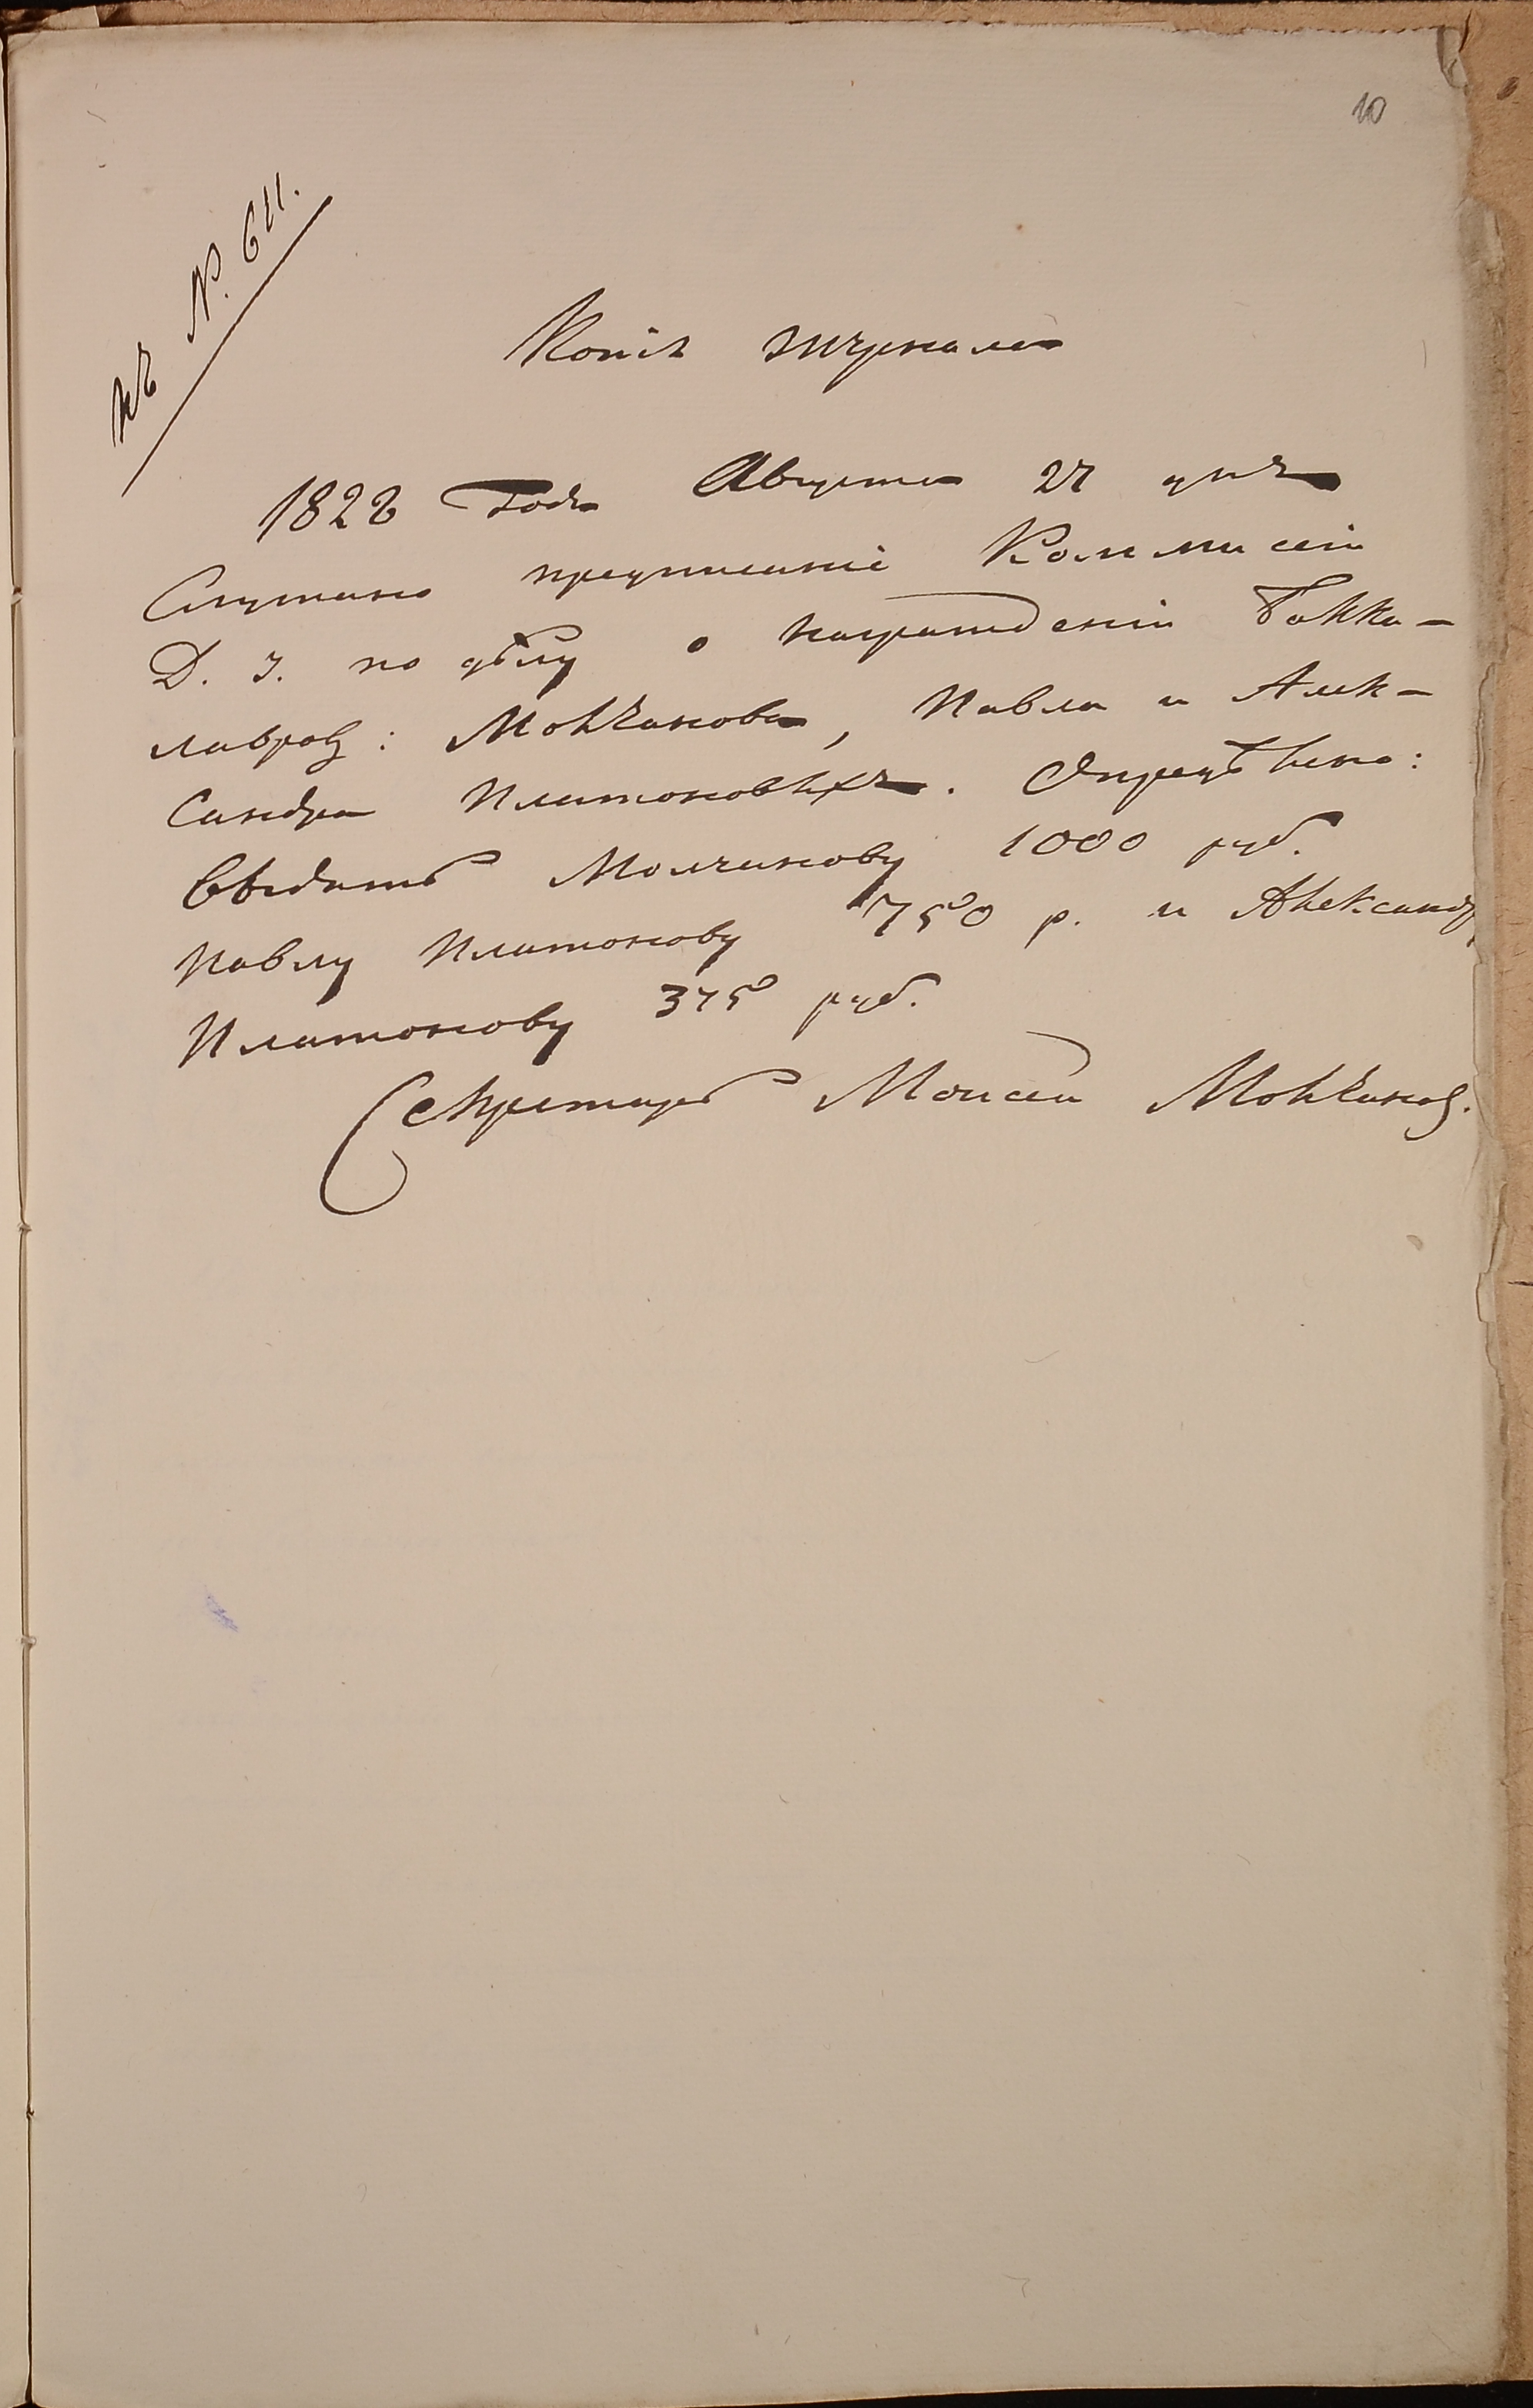 10
къ №. 611.
Копія журнала
1822 Года Августа 27 дня
Слушано предписаніе Коммисіи
Д. У. по дѣлу о награжденіи Бакка-
лавров: Молчанова, Павла и Алек-
Сандра Платоновыхъ. Опредѣлено:
Выдать Молчанову 1000 руб.
Павлу Платонову 750 р. и Александр
Платонову 375 руб.
Секретарь Моисей Молчанов.